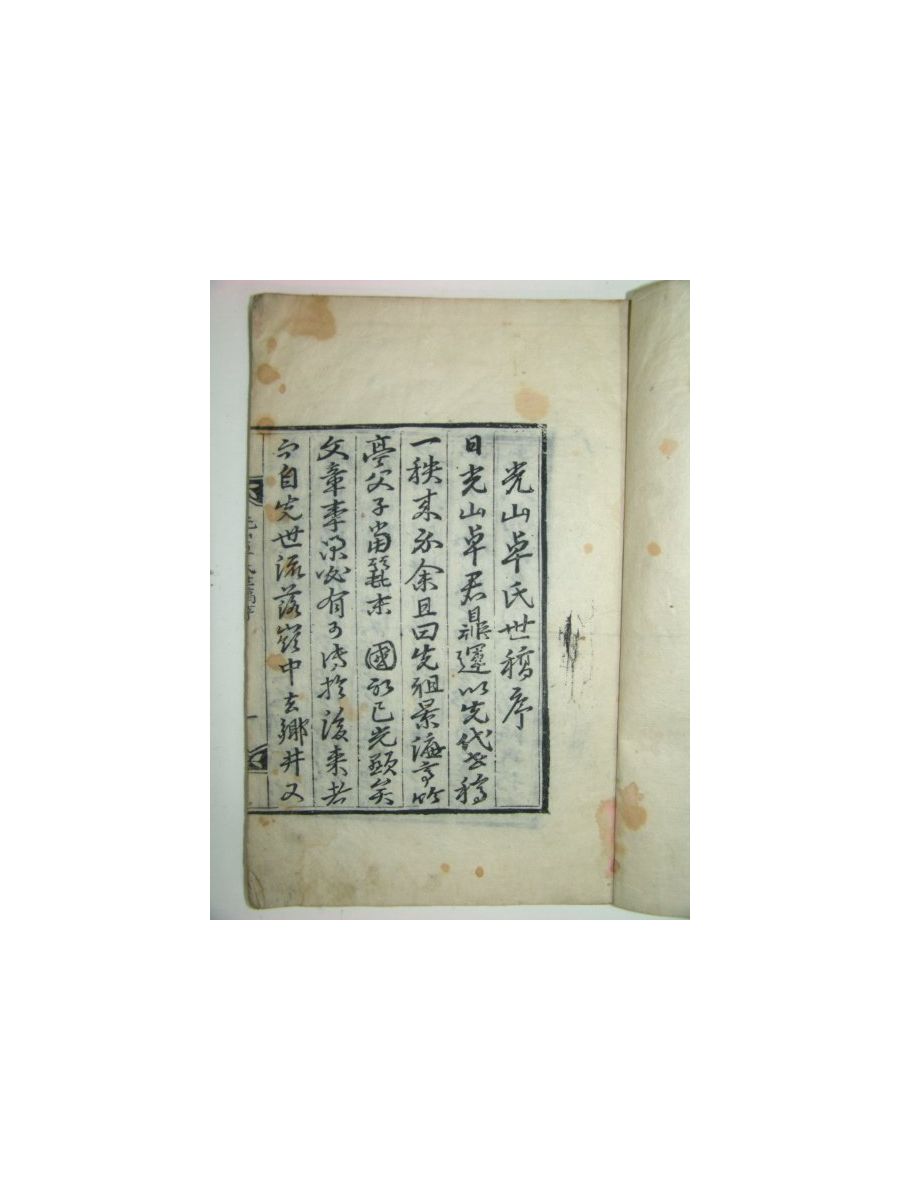 光山卓氏世稿序
日光山卓君鼎運以先代世稿
一秩來示余且曰先祖景濂亭竹
亭父子當麗末 國初已光顯矣
文章事業必有可傳於後來者
而自先世流落嶺中去鄕井又
光山卓氏世稿序
一